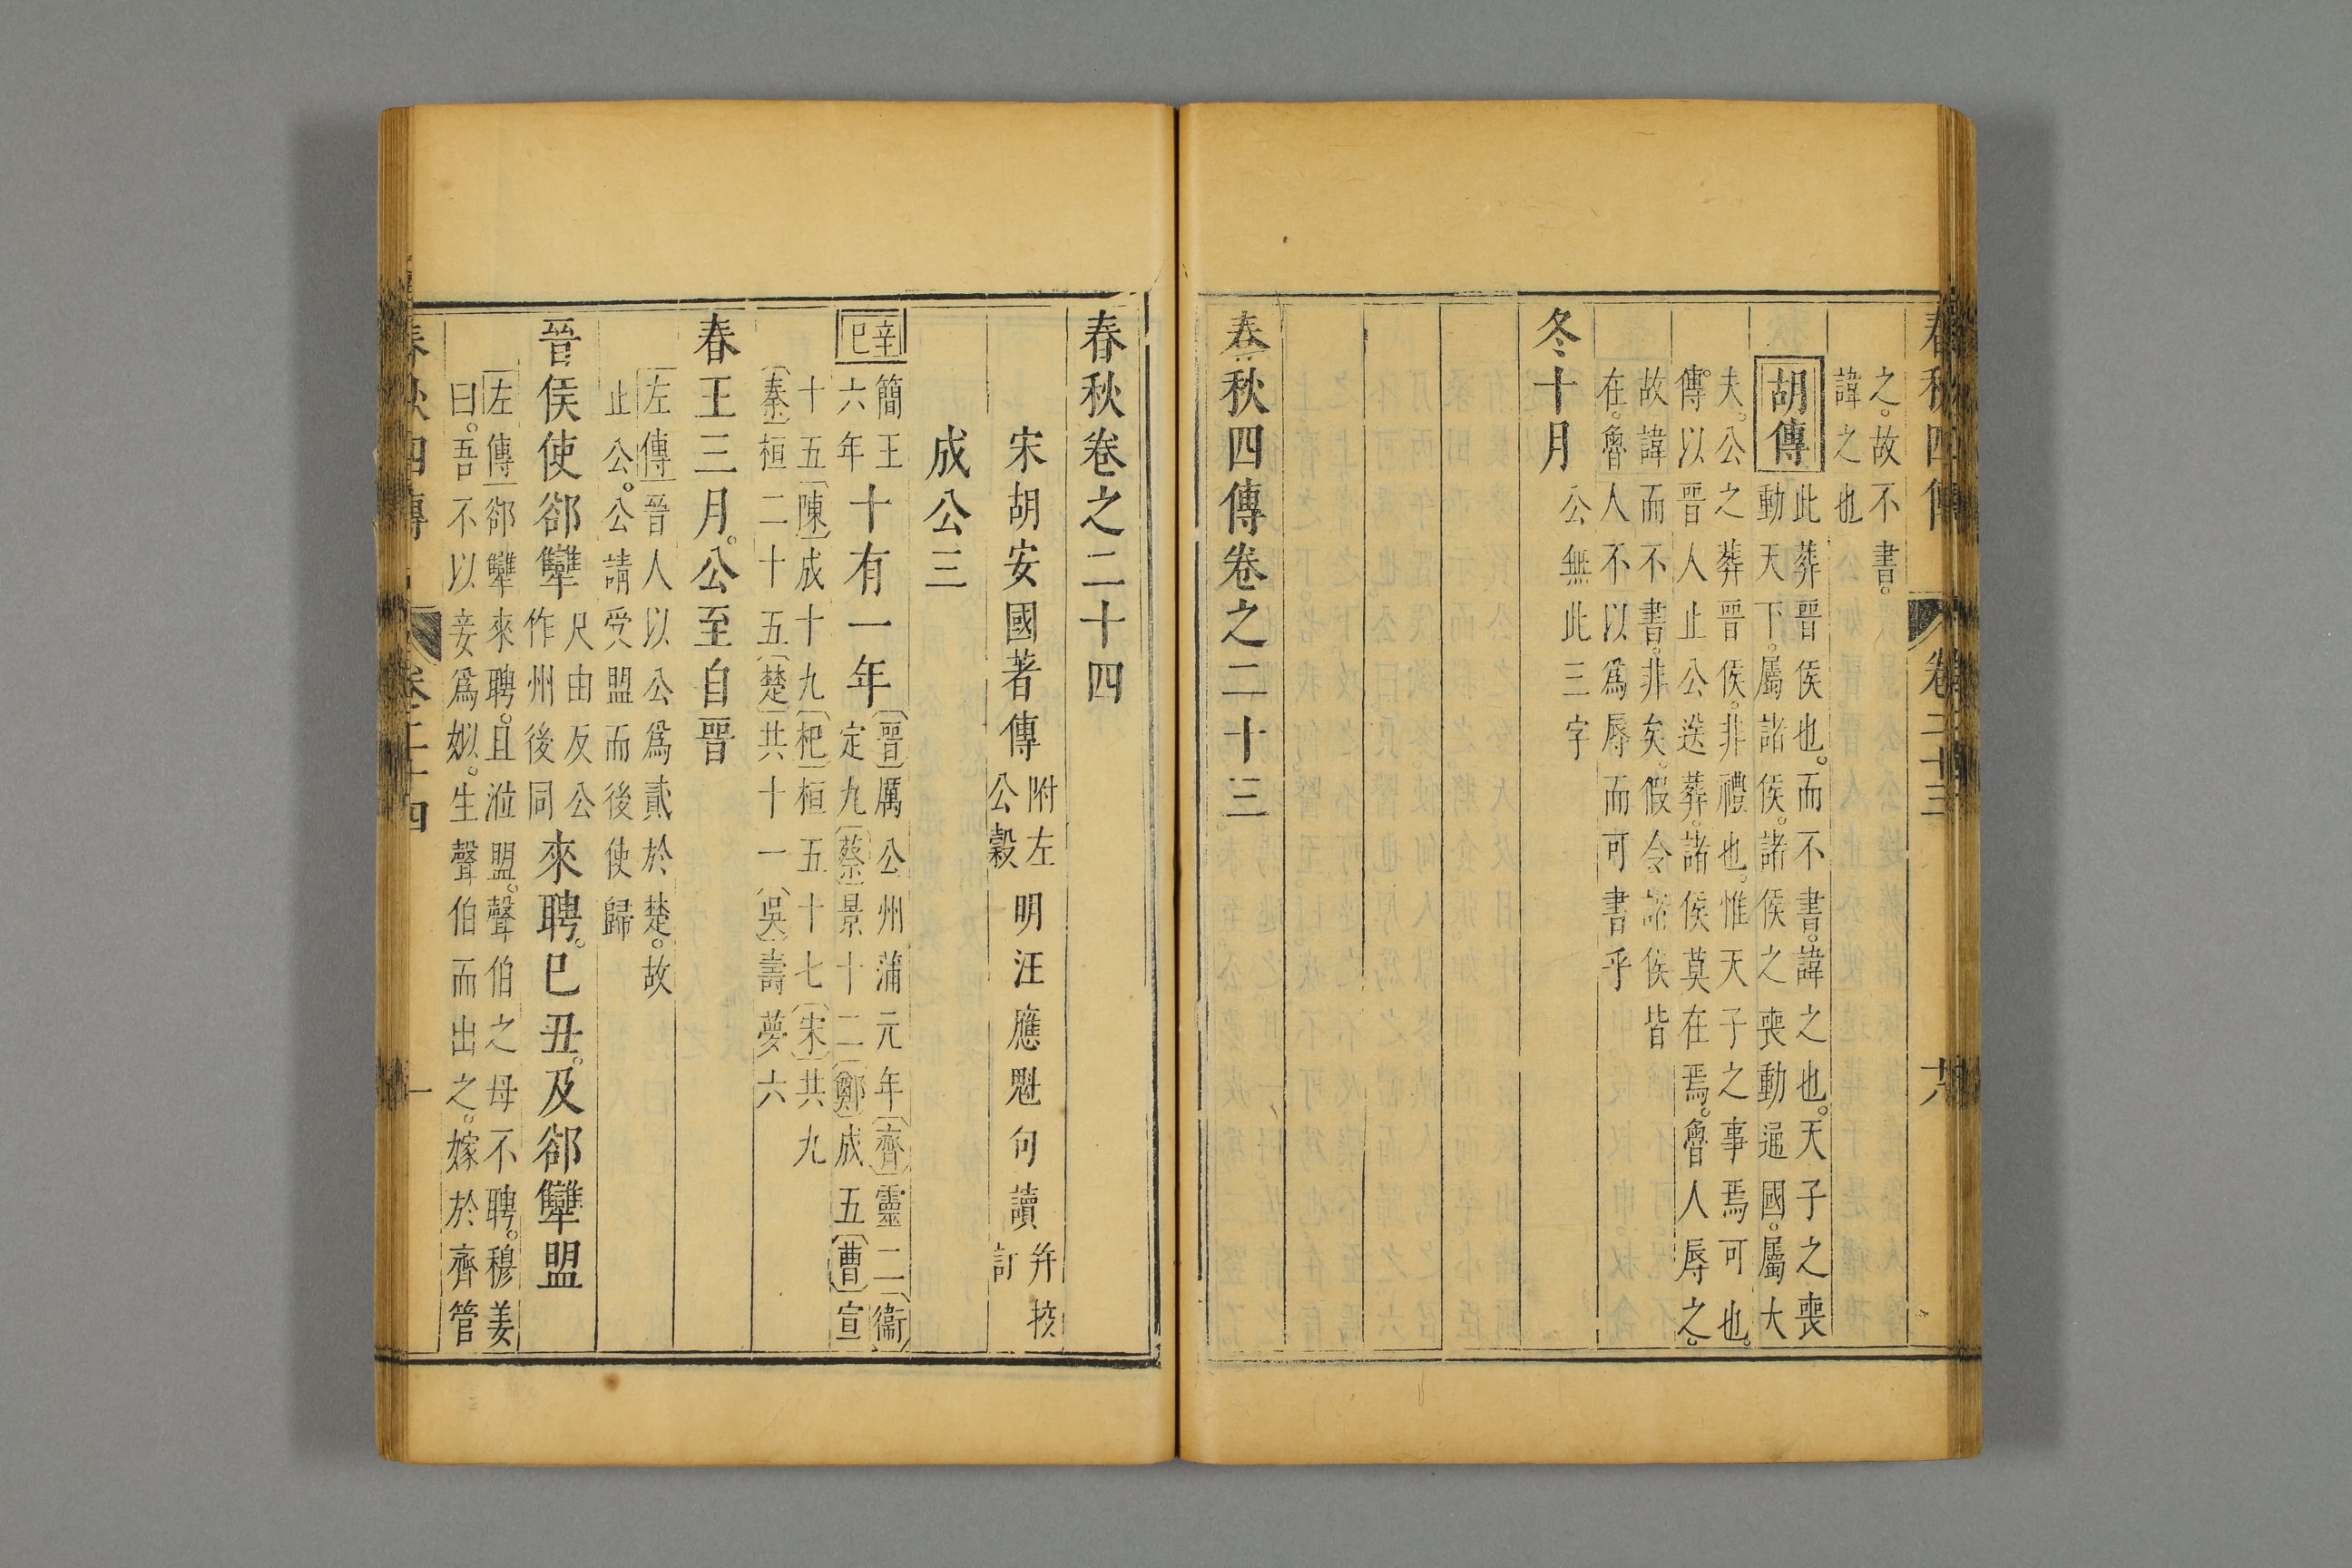 春秋四傳
卷二十三
之。故不書。
諱之也
胡傳
此葬晉侯也。而不書。諱之也。天子之喪
動天下。屬諸侯。諸侯之喪動通國。屬大
夫。公之葬晉侯。非禮也。惟天子之事焉可也。
傳以晉人止公送葬。諸侯莫在焉。魯人辱之。
故諱而不書。非矣。假令諸侯皆
在。魯人不以爲辱而可書乎
冬十月
公無此三字
春秋四傳卷之二十三
春秋卷之二十四
宋胡安國著傳
附左
公穀
明汪應魁句讀
并挍
訂
成公三
辛巳
簡王
六年
十有一年
晉厲公州蒲元年齊靈二衞
定九蔡景十二鄭成五曹宣
十五陳成十九杞桓五十七宋共九
秦桓二十五楚共十一吳壽夢六
春王三月。公至自晉
左傳晉人以公爲貳於楚。故
止公。公請受盟而後使歸
晉侯使郤犫
尺由反公
作州後同
來聘。巳丑。及郤犫盟
左傳郤犫來聘。且涖盟。聲伯之母不聘。穆姜
曰。吾不以妾爲姒。生聲伯而出之。嫁於齊管
春秋四傳
卷二十四
一